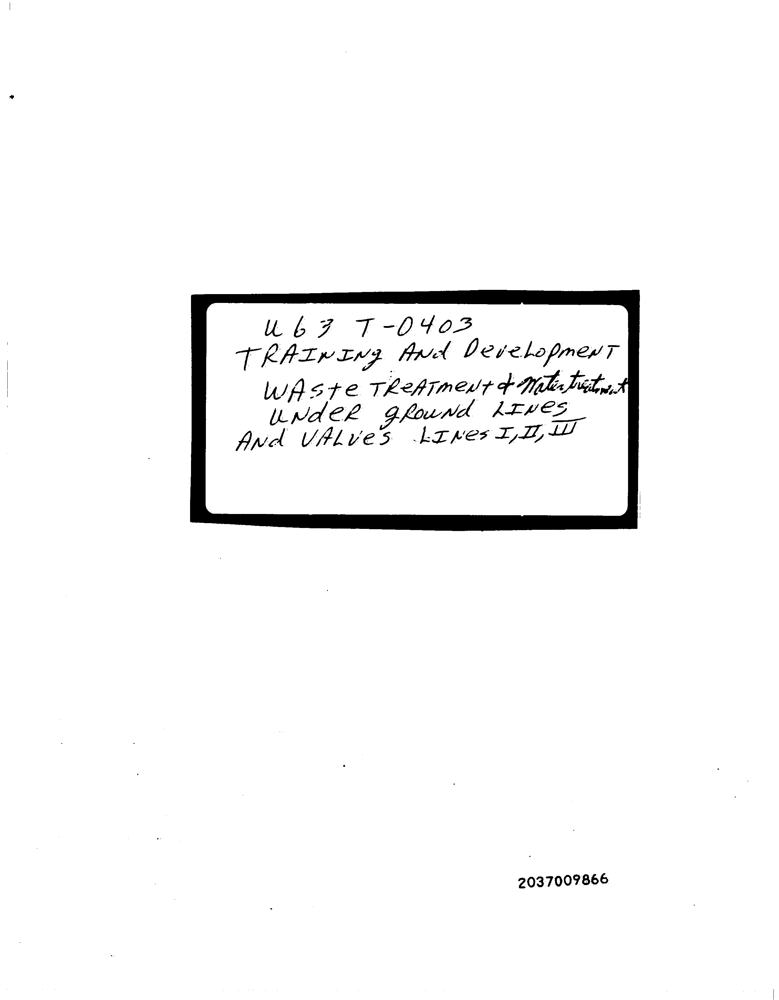 U63 T-0403
TRAINING And DeveLopmeNT
WASte TReATmeNt & Water treatment
UNdeR gRouNd LINes
ANd VALVeS LINes I, II, III
2037009866